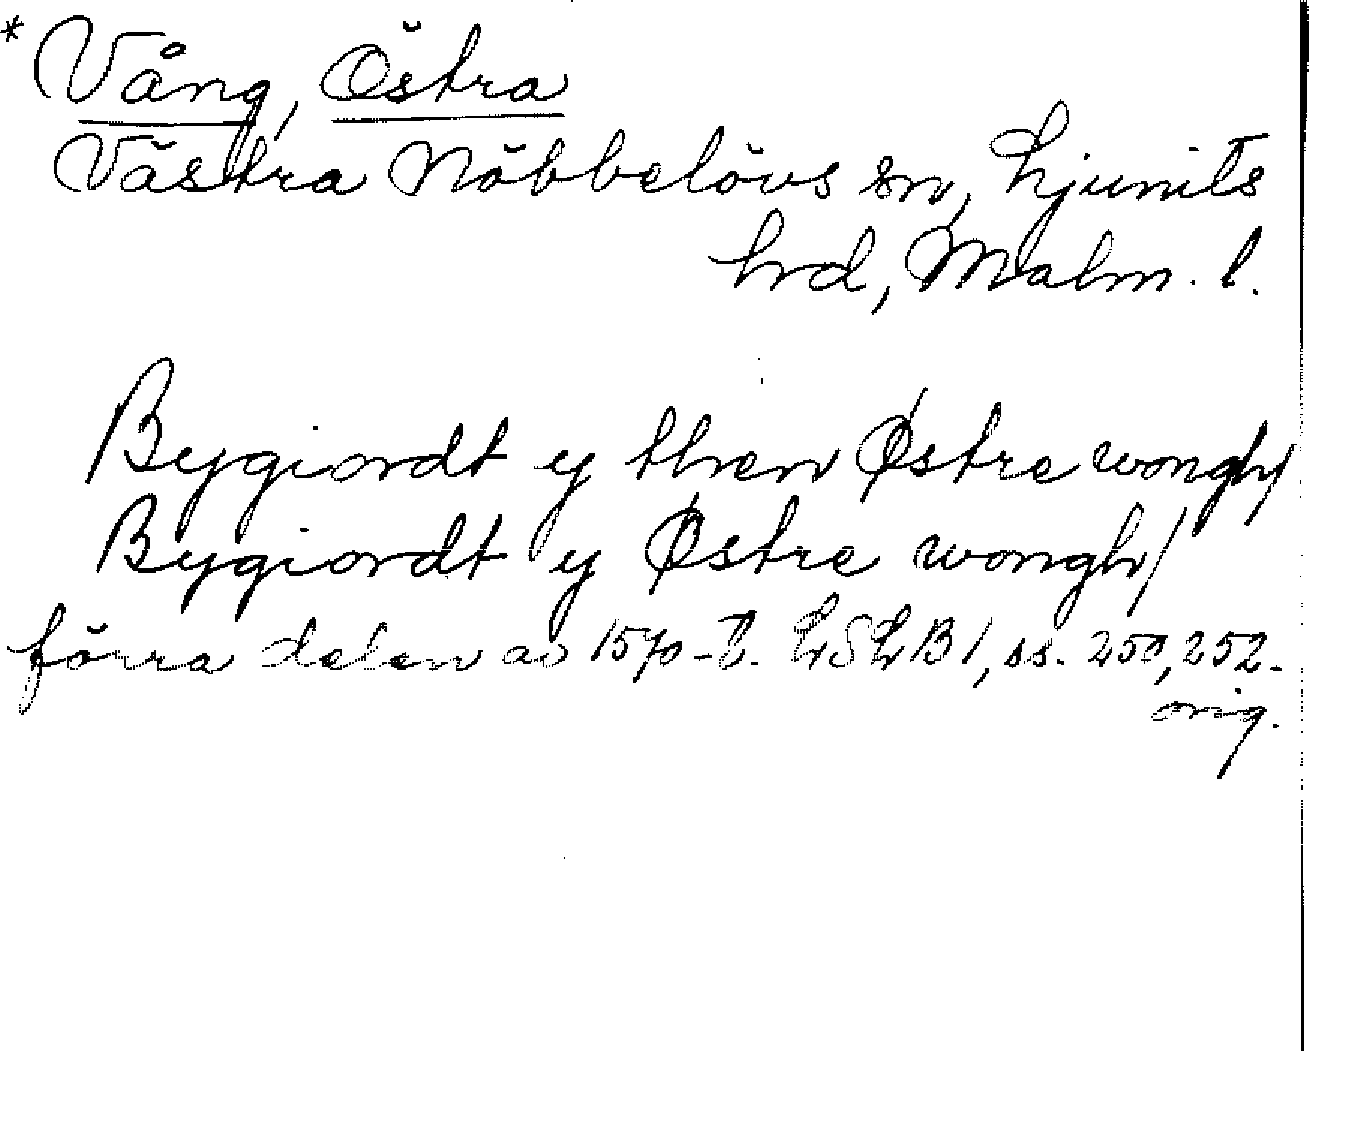 * Vång, Östra
Västra Nöbbelövs sn, Ljunits
hrd, Malm. l.
Bygiordt y then Østre wongh/
Bygiordt y Østre wongh/
förra delen av 1570-t. LSLB 1, ss. 250, 252.
orig.